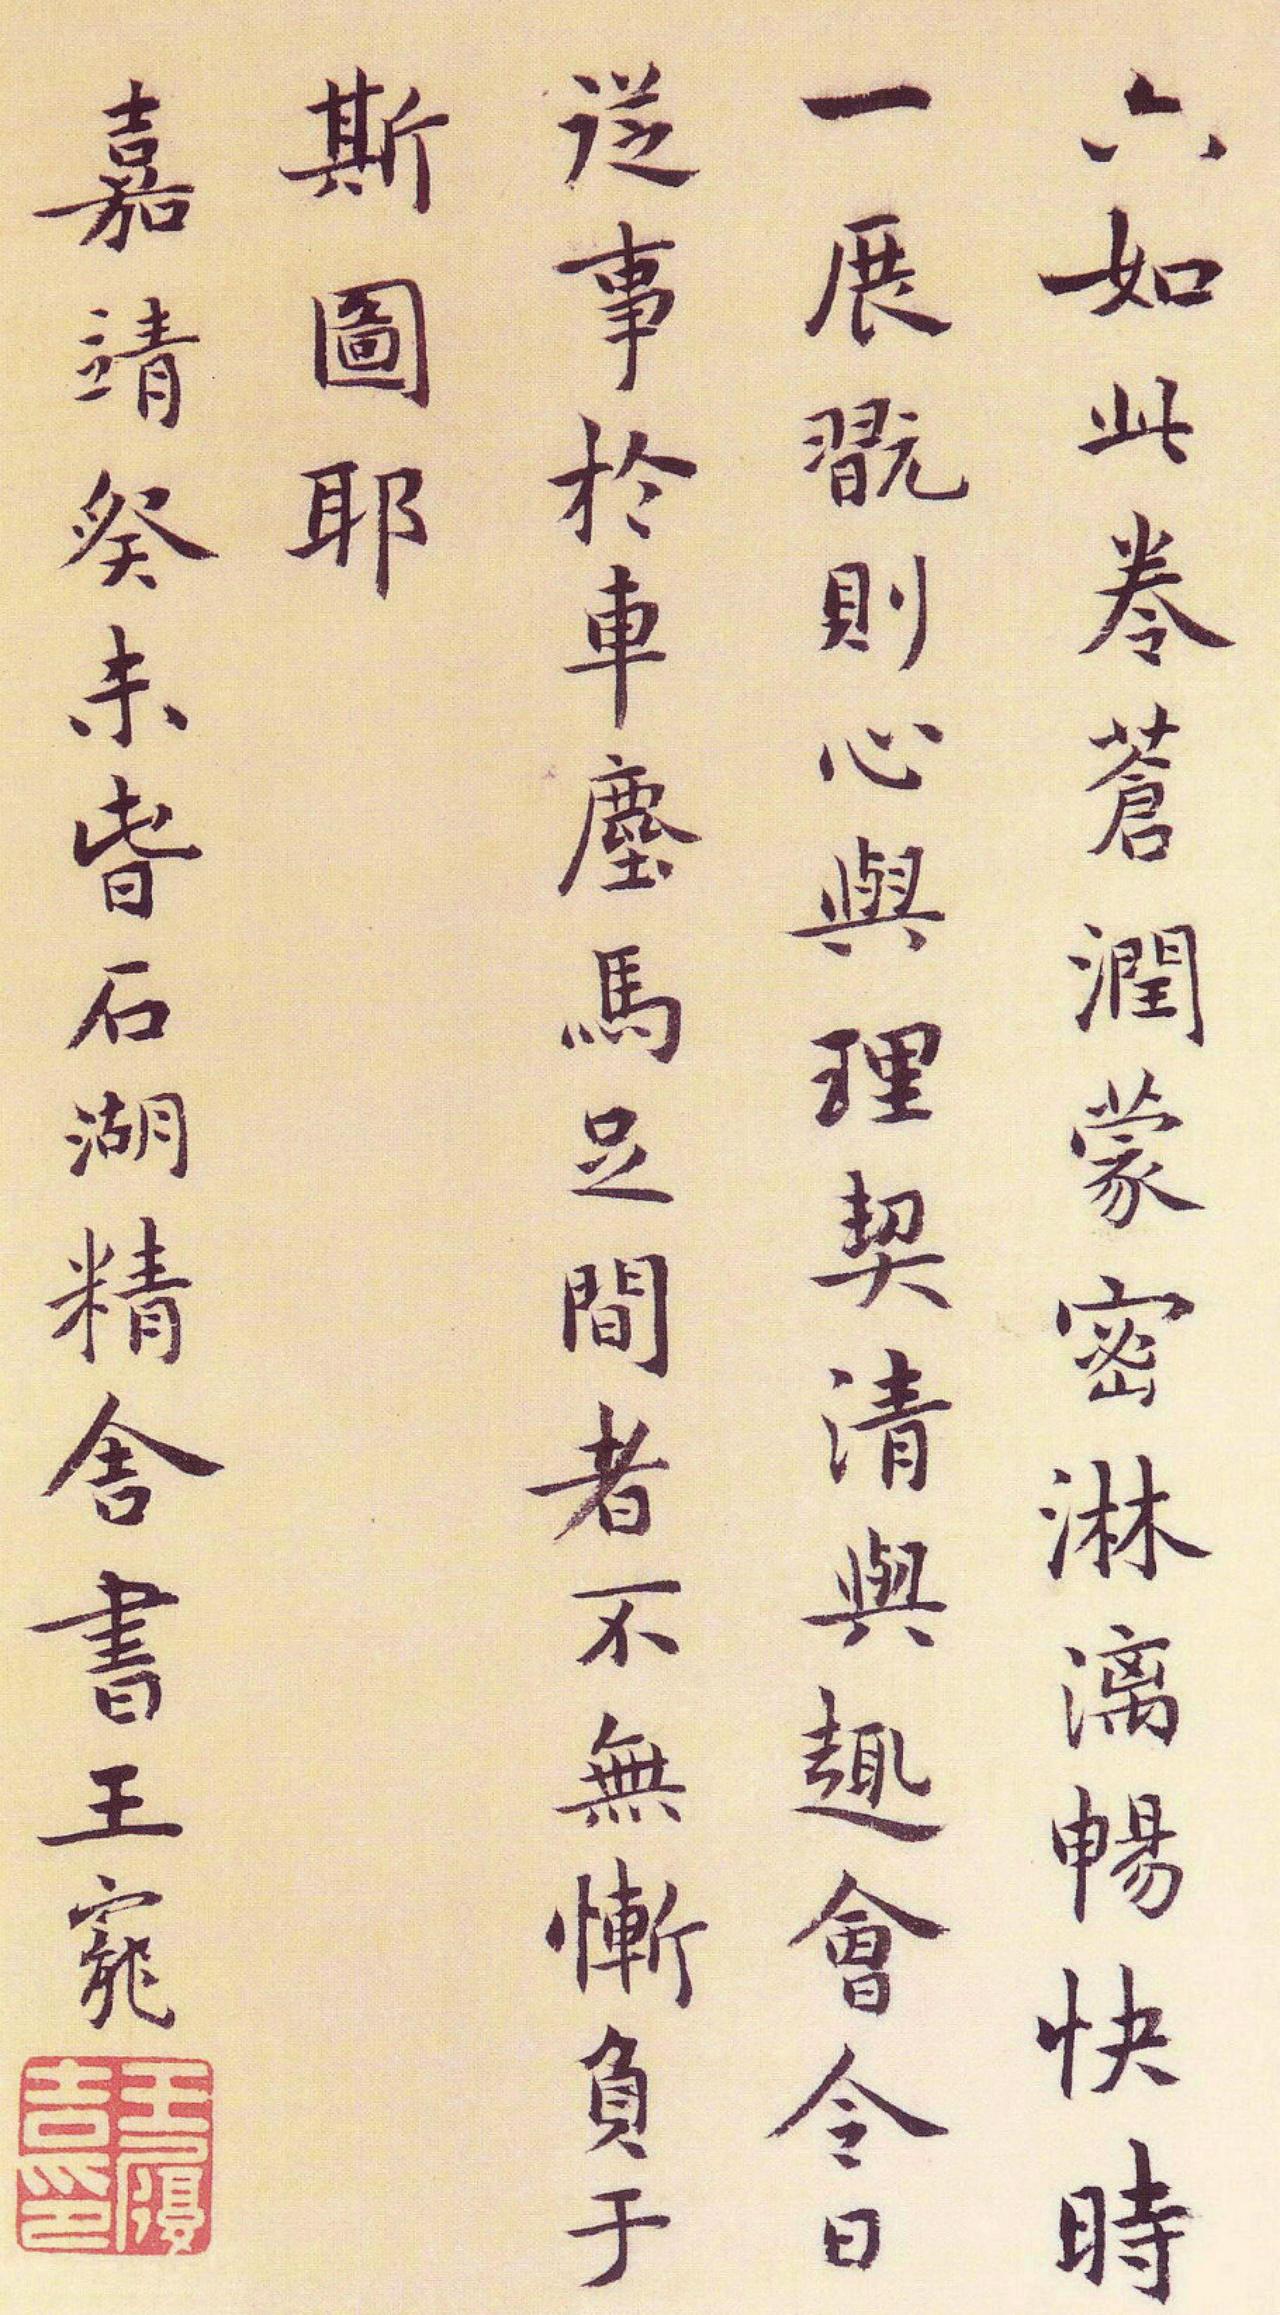 六如此卷蒼潤蒙密淋漓暢快時
一展翫則心與理契清與趣會今日
從事於車塵馬足間者不無慚負于
斯圖耶
嘉靖癸未昔石湖精舍書王寵
王履吉印